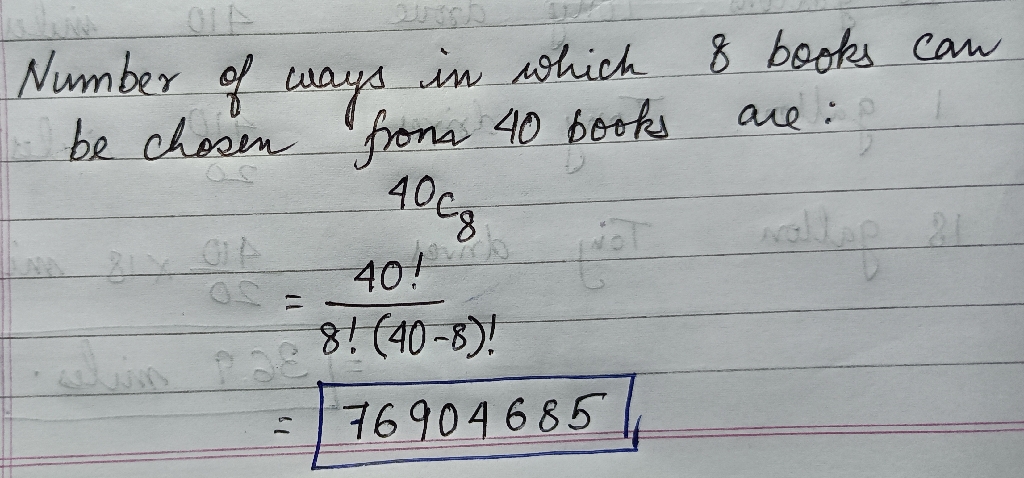 Number of ways in which 8 books can
be chosen from 40 books are :
40C8
= 40! / 8! (40-8)!
= 76904685